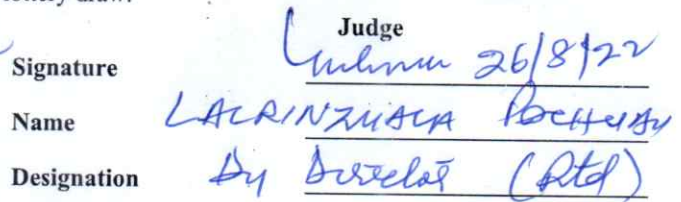 Judge
Signature 26/8/22
Name LALRINZUALA
Designation Dy Director (Rtd)